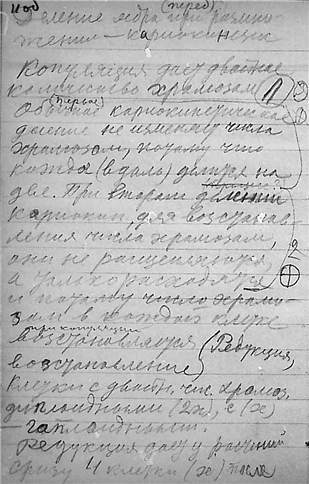 Деление ядра при размно-
(перед)
жении – кариокинезис
Копуляция дает двойное
количество хромозом (1)
Обычное кариокинетическое
(первое)
деление не изменяет числа
хромозом, потому что
каждая (вдоль) делится на
две. При втором делении
кариокин. для восстанав-
ления числа хромозам,
они не расщепляются, 2
а только расходятся
и потому число хромо-
зом в каждой клетке
при копуляции
восстановляется (Редукция,
восстановление)
Клетки с двойн. чис. хромоз.
диплоидными (2x), с (x)
гаплоидными.
Редукция дает у растений
сразу 4 клетки (x) после